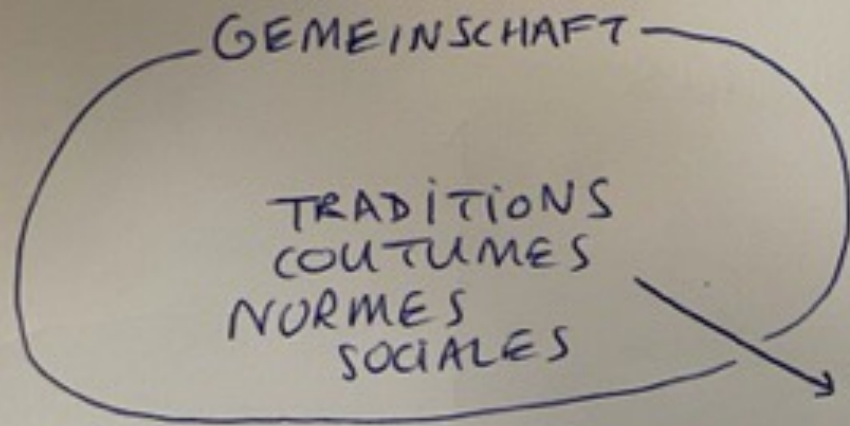 GEMEINSCHAFT
TRADITIONS
COUTUMES
NORMES
SOCIALES